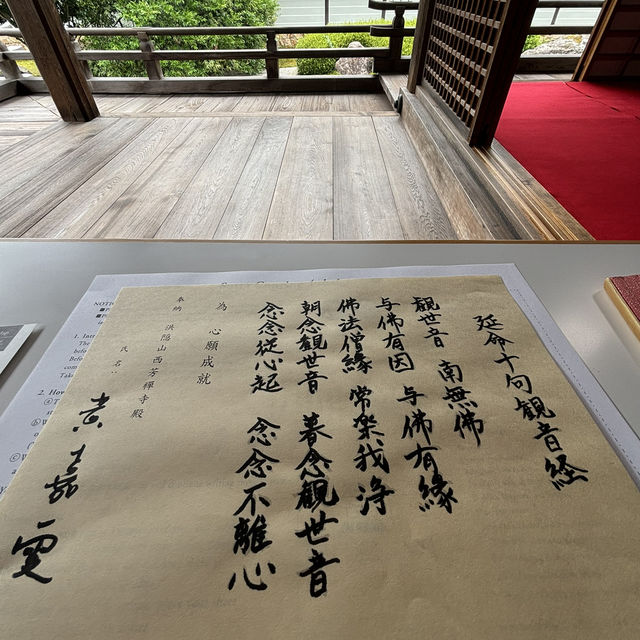 延命十句観音経
観世音 南無佛
与佛有因 与佛有縁
佛法僧縁 常楽我浄
朝念観世音 暮念観世音
念念従心起 念念不離心
為 心願成就
奉納 洪隠山西芳禅寺殿
氏名
黄嘉雯